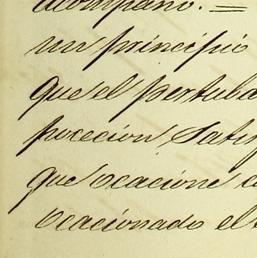 acompano. =
un principio
que el pertuba
pocecion Satis
que ocacione
ocacionado el